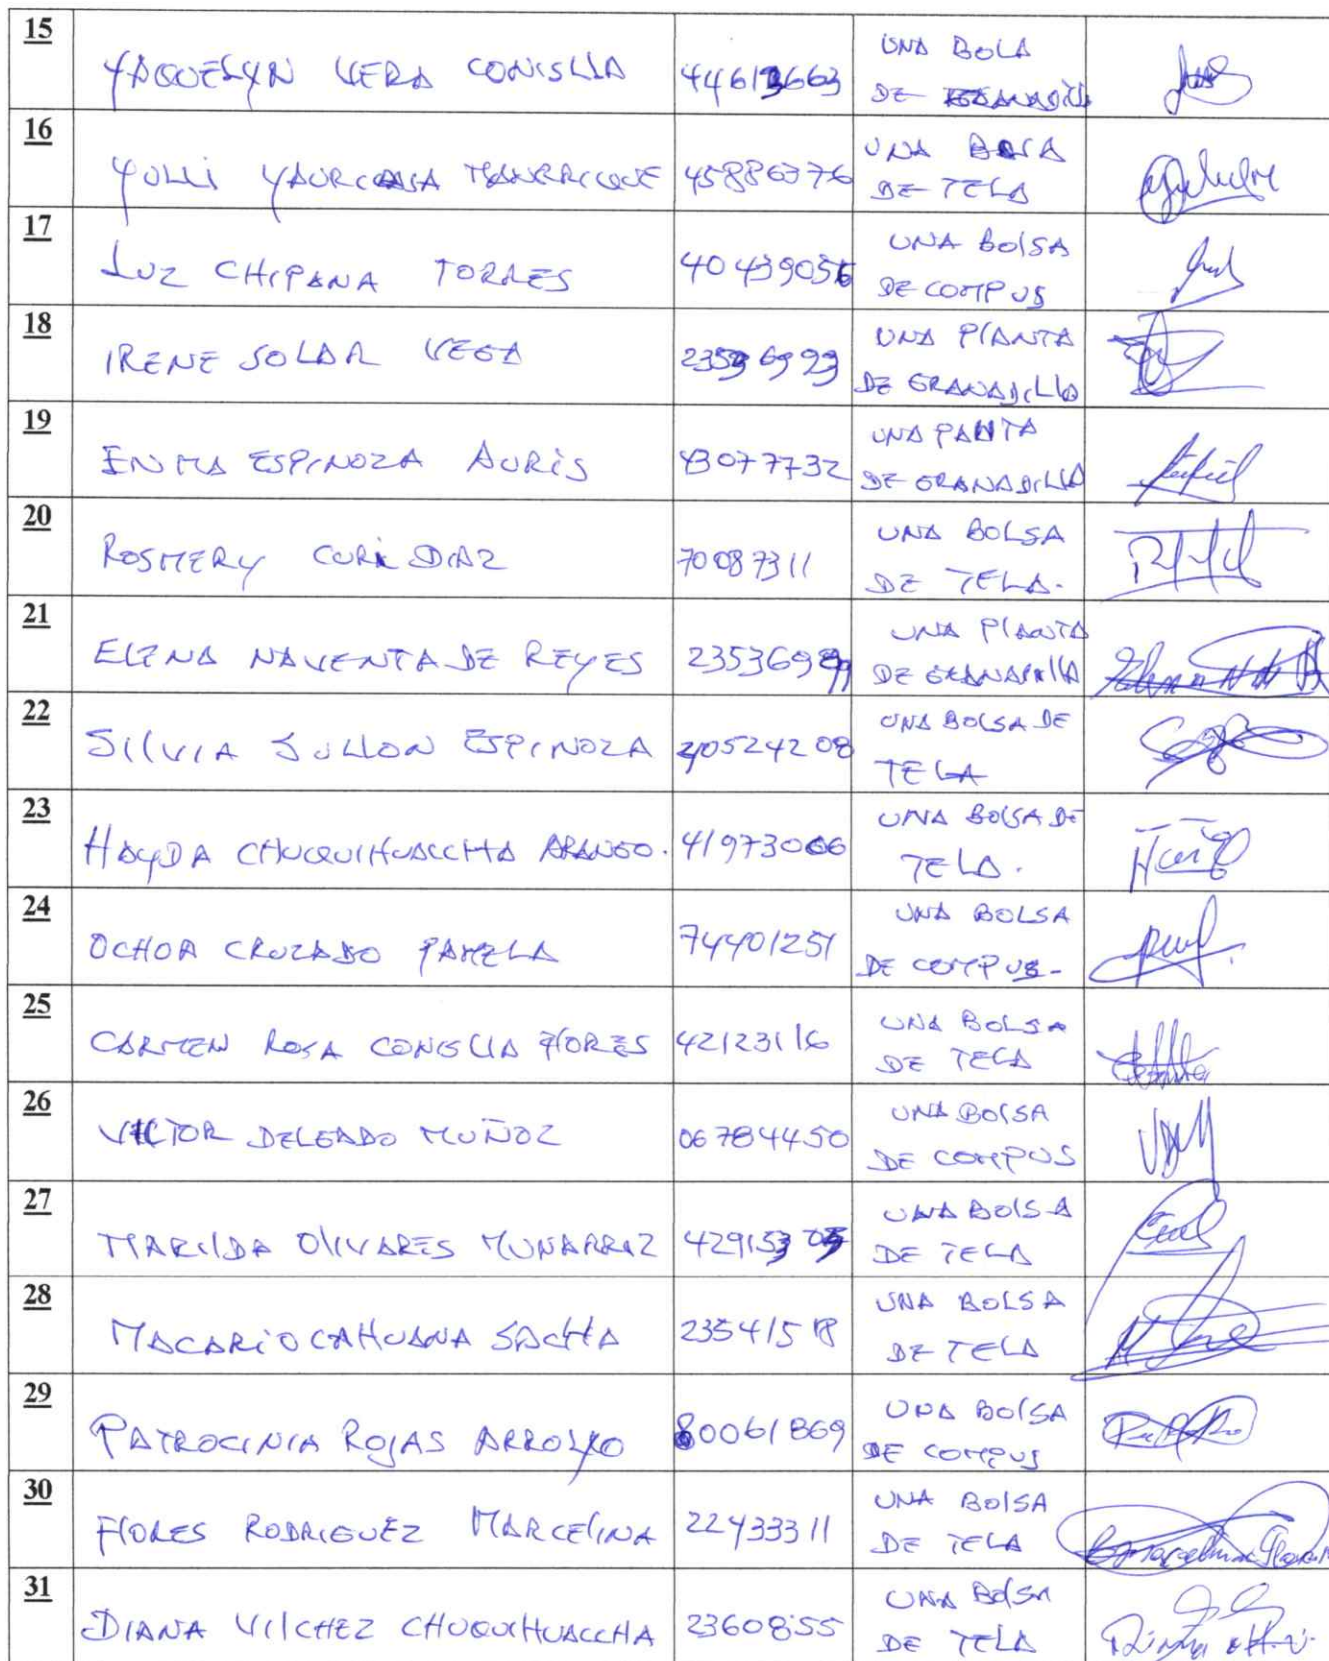 15
YAQUELYN VERA CONISLLA 44613663 UNA BOLA
DE GRANADILL
16
YULLI YAURICASA MANRRIQUE 45886376 UNA BOLSA
DE TELA
17
LUZ CHIPANA TORRES 40439056 UNA BOLSA
DE COMPUS
18
IRENE SOLAR VEGA 23536923 UNA PLANTA
DE GRANADILLO
19
ENMA ESPINOZA AURIS 43077732 UNA PANTA
DE GRANADILLA
20
ROSMERY CURI DIAZ 70087311 UNA BOLSA
DE TELA.
21
ELENA NAVENTA DE REYES 23536989 UNA PLANTA
DE GRANADILLA
22
SILVIA SULLON ESPINOZA 40524208 UNA BOLSA DE
TELA
23
HAYDA CHUQUIHUACCHA ARANGO. 41973066 UNA BOLSA DE
TELA.
24
OCHOA CRUZADO PAMELA 74401251 UNA BOLSA
DE COMPUS-
25
CARMEN ROSA CONISLLA FLORES 42123116 UNA BOLSA
DE TELA
26
VICTOR DELGADO MUÑOZ 06784450 UNA BOLSA
DE COMPUS
27
MARILDA OLIVARES MUNARRIZ 42915375 UNA BOLSA
DE TELA
28
MACARIO CAHUANA SACHA 23541518 UNA BOLSA
DE TELA
29
PATROCINIA ROJAS ARROYO 80061869 UNA BOLSA
DE COMPUS
30
FLORES RODRIGUEZ MARCELINA 22433311 UNA BOLSA
DE TELA
31
DIANA VILCHEZ CHUQUIHUACCHA 2360855 UNA BOLSA
DE TELA